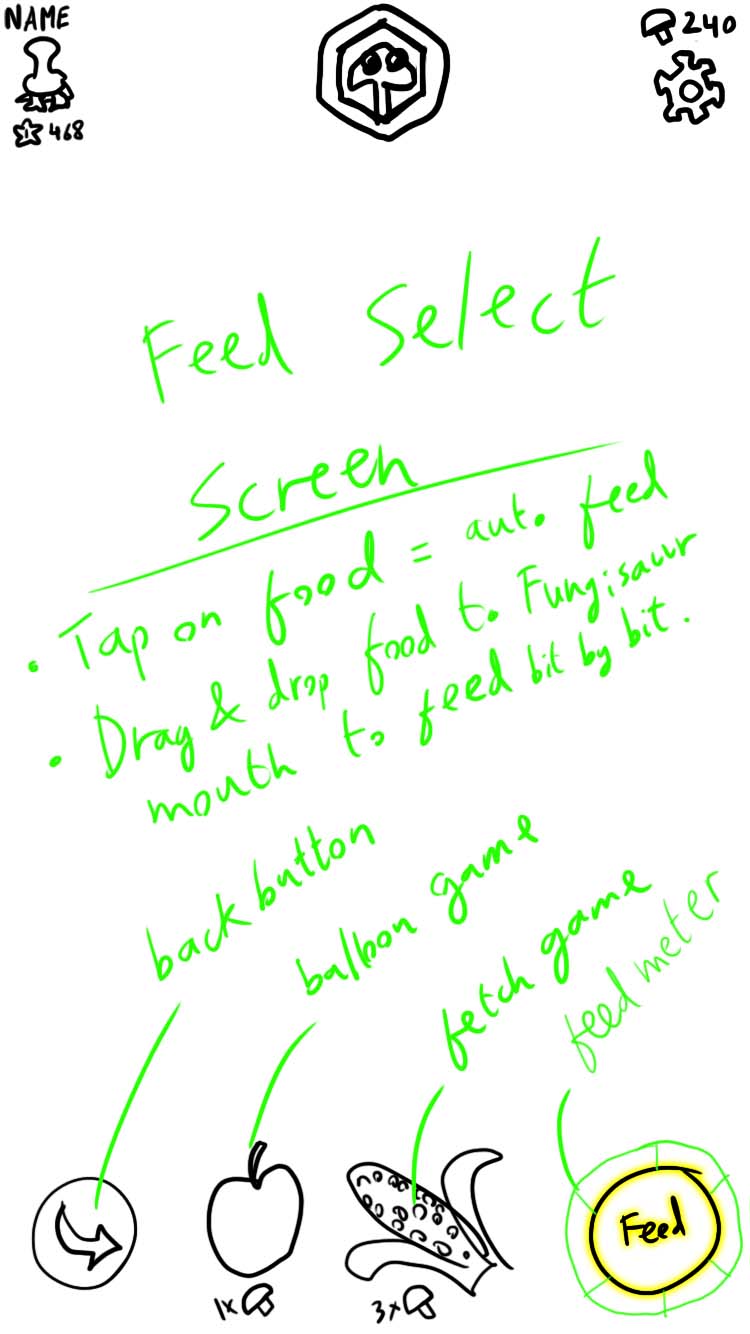 NAME
240
1 468
Feed Select
Screen
• Tap on food = auto feed
• Drag & drop food to Fungisaur
mouth to feed bit by bit.
back button
balloon game
fetch game
feed meter
Feed
1x
3x